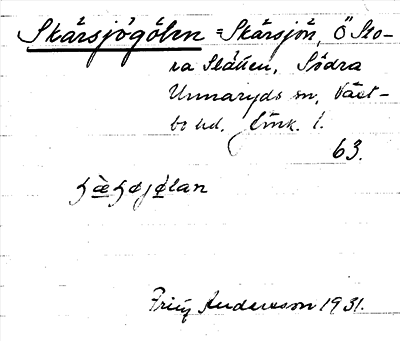 Skärsjögölen = Skärsjön, Ö Sto-
ra Slätten, Södra
Unnaryds sn, Väst-
bo hd. Link. 1.
63.
Fritz Andersson 1931.